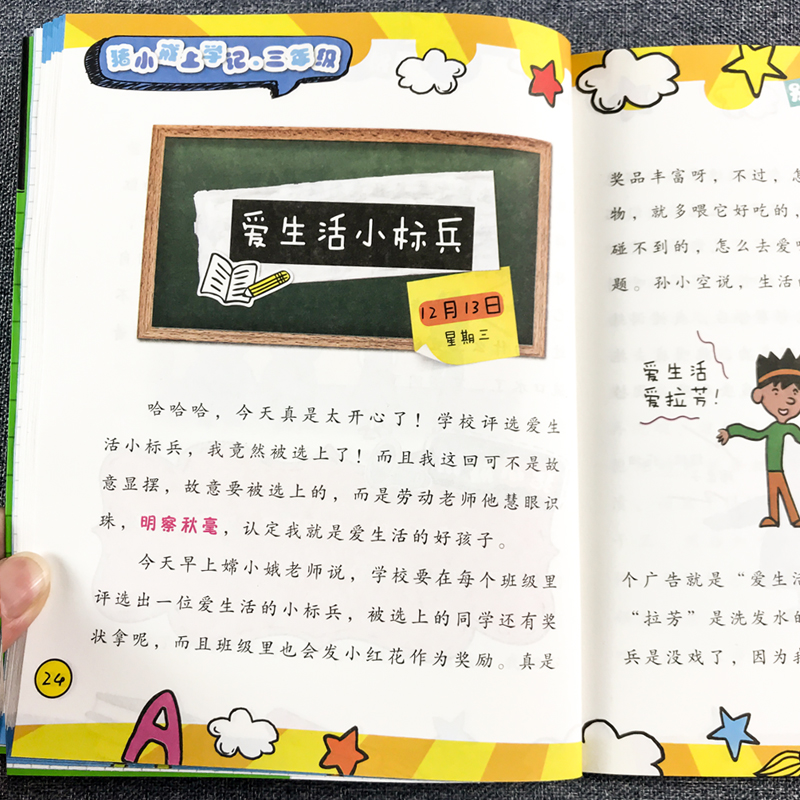 猪小戒上学记·三年级
爱生活小标兵
12月13日
星期三
哈哈哈，今天真是太开心了！学校评选爱生
活小标兵，我竟然被选上了！而且我这回可不是故
意显摆，故意要被选上的，而是劳动老师他慧眼识
珠，明察秋毫，认定我就是爱生活的好孩子。
今天早上嫦小娥老师说，学校要在每个班级里
评选出一位爱生活的小标兵，被选上的同学还有奖
状拿呢，而且班级里也会发小红花作为奖励。真是
24
A
奖品丰富呀，不过，怎
物，就多喂它好吃的，
碰不到的，怎么去爱
题。孙小空说，生活
爱生活
爱拉芳！
个广告就是“爱生活
“拉芳”是洗发水的
兵是没戏了，因为我